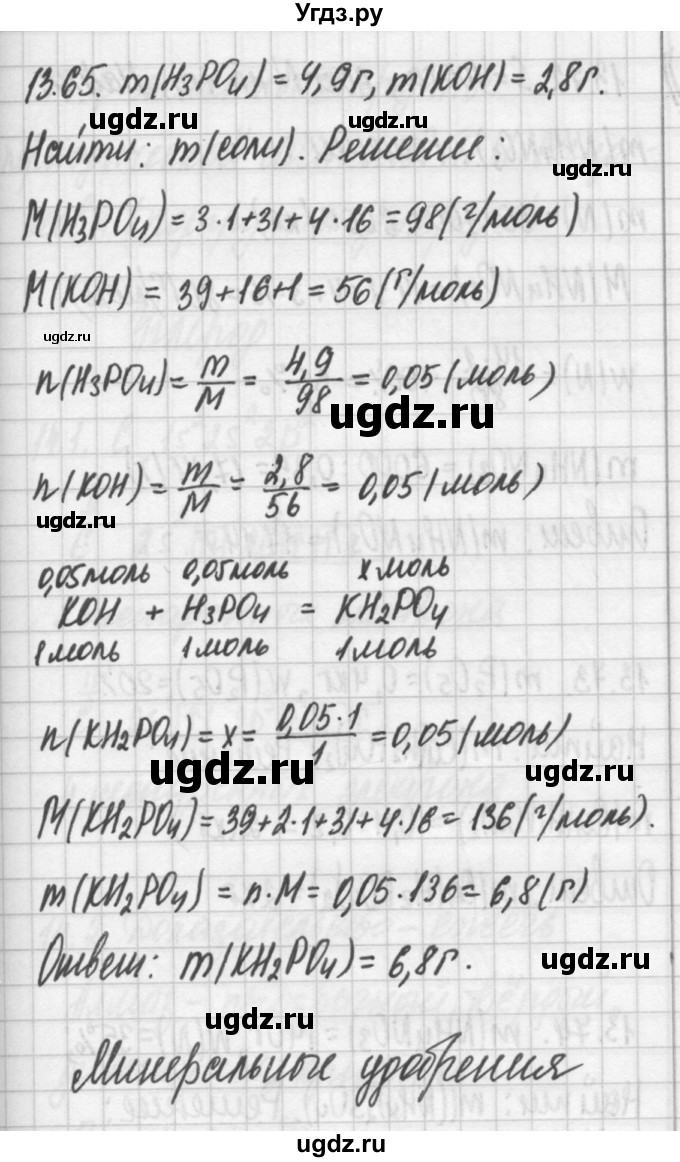 Угдз.ру
13.65. m(H₃PO₄) = 4,9г, m(KOH) = 2,8г.
ugdz.ru ugdz.ru
Найти: m(соли). Решение:
ugdz.ru
M(H₃PO₄) = 3·1+31+4·16 = 98(г/моль)
M(KOH) = 39+16+1 = 56(г/моль)
ugdz.ru
n(H₃PO₄) = m/M = 4,9/98 = 0,05(моль)
ugdz.ru
n(KOH) = m/M = 2,8/56 = 0,05(моль)
ugdz.ru
0,05моль 0,05моль x моль
KOH + H₃PO₄ = KH₂PO₄
1моль 1моль 1моль
n(KH₂PO₄) = x = 0,05·1/1 = 0,05(моль)
ugdz.ru ugdz.ru
M(KH₂PO₄) = 39+2·1+31+4·16 = 136(г/моль).
m(KH₂PO₄) = n·M = 0,05·136 = 6,8(г)
Ответ: m(KH₂PO₄) = 6,8г.
ugdz.ru
ugdz.ru
Минеральные удобрения
ugdz.ru